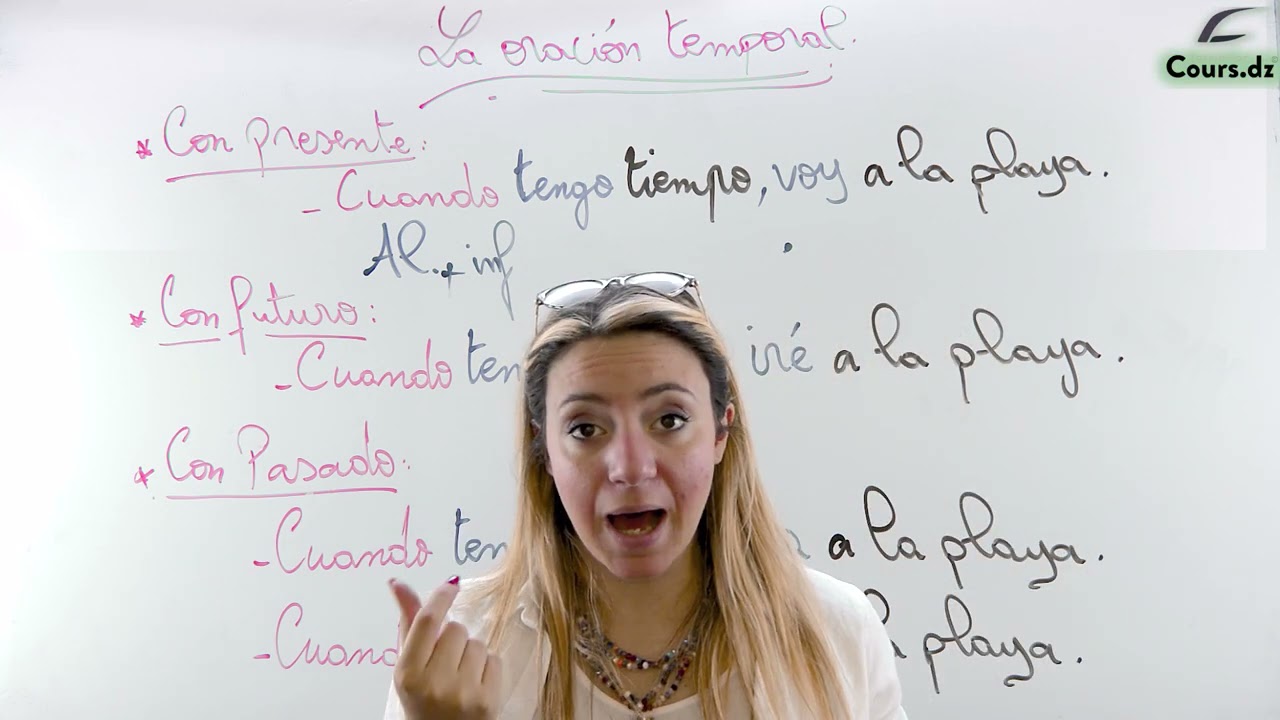 La oración temporal.
Cours.dz
* Con presente:
- Cuando tengo tiempo, voy a la playa.
Al + inf
* Con futuro:
- Cuando ten iré a la playa.
* Con Pasado:
- Cuando ten a la playa.
- Cuand playa.